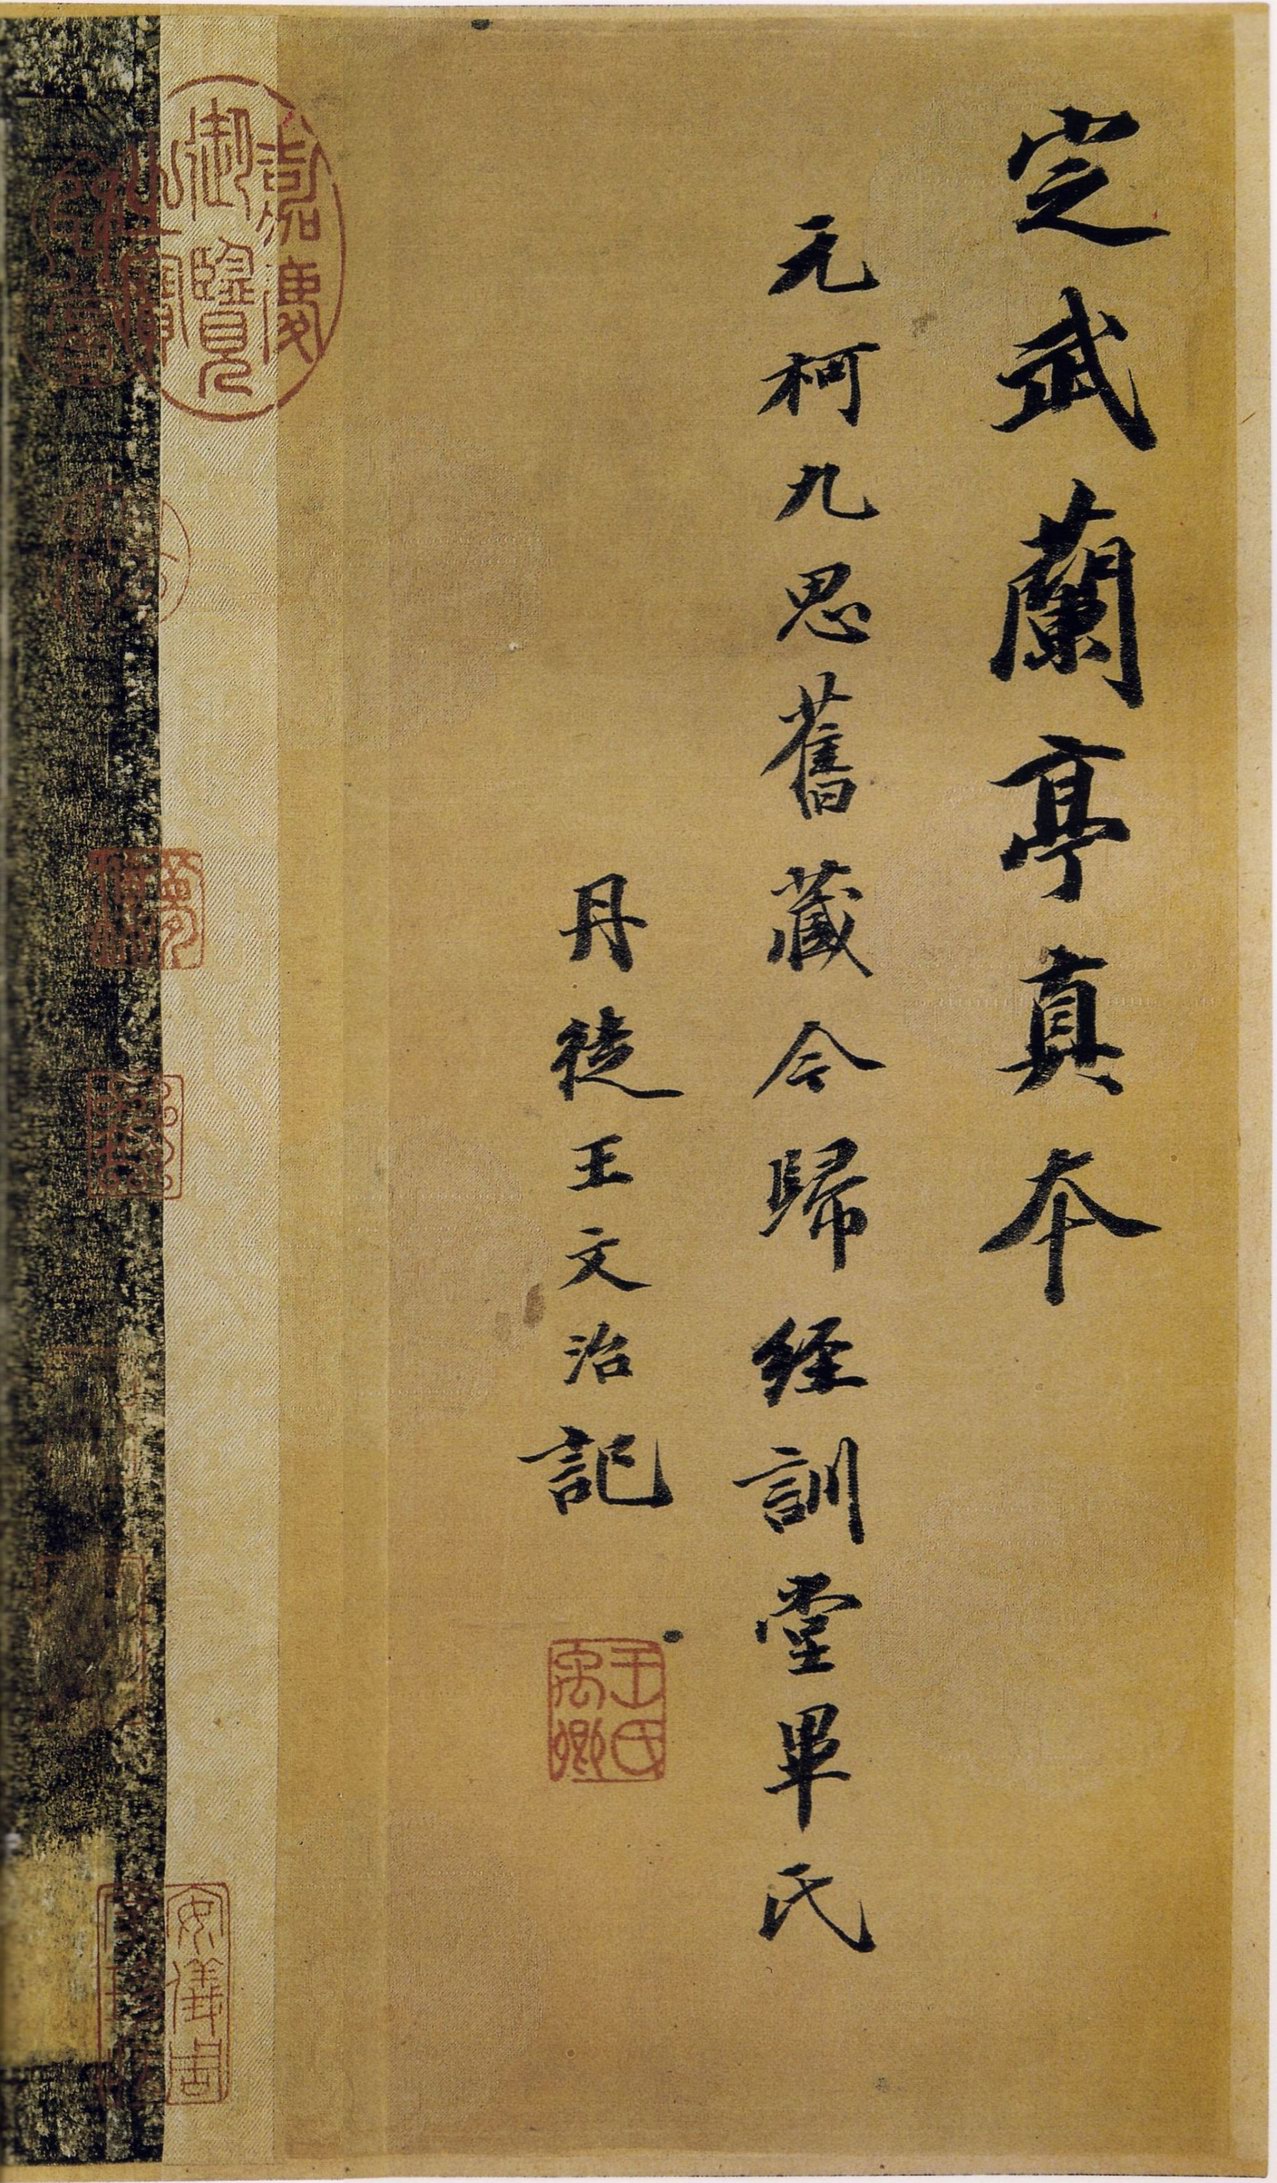 定武蘭亭真本
元柯九思舊藏今歸経訓堂畢氏
丹徒王文治記
王氏禹卿
嘉慶御覽
安儀周